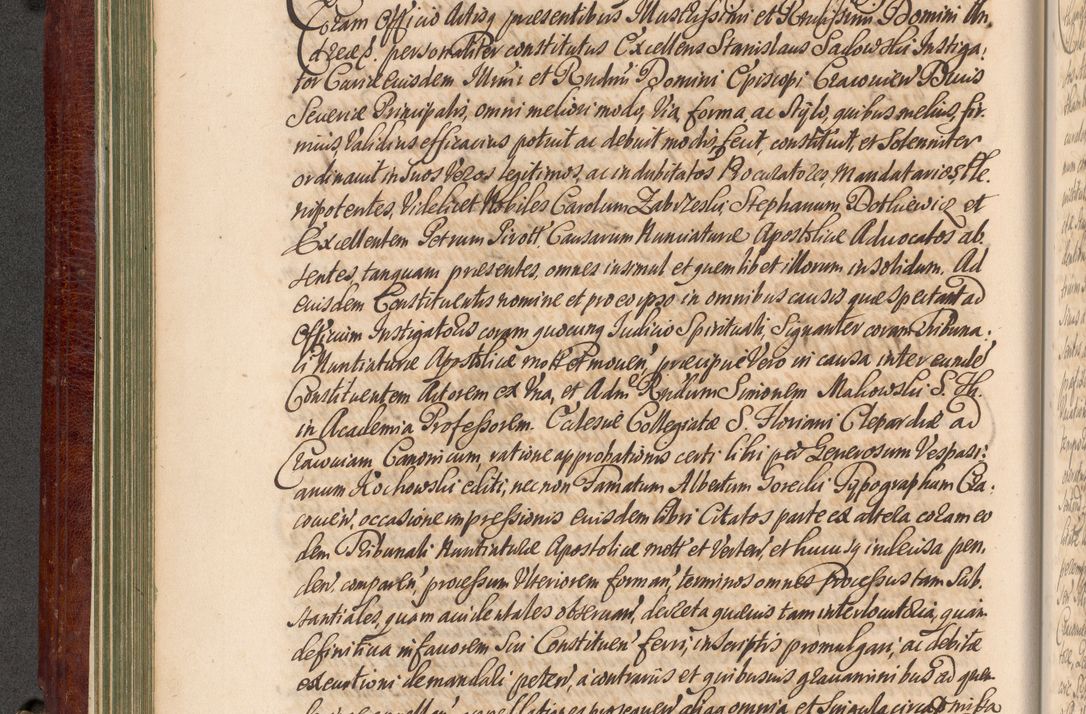 Coram Officio Actisq praesentibus Illustrissimi et Rndissimi Domini An
dreae p. personaliter constitutus Excellens Stanislaus Sadowski Instiga:
tor Curiae eiusdem Illrmi et Rndmi Domini Episcopi Cracovien Ducis
Severiae Principalis, omni meliori modo, via, forma, ac stylo, quibus melius, fir,
mius, validius efficacius potuit ac debuit modis, fecit, constituit, et Solenniter
ordinavit in suos veros legitimos, ac indubitatos Procuratores, Mandatarios, Ple.
nipotentes, Videlicet Nobiles Carolum Zabrzeski, Stephanum Dotkiewicz et
Excellentem Petrum Pirott Causarum Nunciaturae Apostolicae Advocatos ab,
sentes, tanquam praesentes, omnes insimul et quemlibet illorum in solidum. Ad
eiusdem Constituentis nomine et pro eo ipso in omnibus causis quae spectant ad
Officium Instigatoris coram quocunq Iudicio Spirituali, Signanter coram Tribuna:
li Nuntiaturae Apostolicae mott et moven, praecipue Vero in causa inter eunde
Constituentem Actorem ex Una, et Adm Rndum Simonem Makowski S. Th.
in Academia Professorem Ecclesiae Collegiatae S. Floriani Clepardiae ad
Cracoviam Canonicum, ratione approbationis certi libri per Generosum Vespasi:
anum Kochowski editi, nec non Famatum Albertum Gorecki Typographum Cra,
covien, occasione impressionis eiusdem libri Citatos parte ex altera coram eo
dem Tribunali Nuntiaturae Apostolicae mott et Verten, et hucusq indecisa pen,
den, comparen, processum Ulteriorem forman, terminos omnes Processus tam Sub,
stantiales, quam accidentales observan, decreta quaevis tam interlocutoria, quam
definitiva in favorem Sui Constituen ferri, in scriptis promulgari, ac debitae
executioni demandari peten, a contrariis et quibusvis gravaminibus ad quem
appellationes prosequen aliaq omnia et Singula circa Praemissa